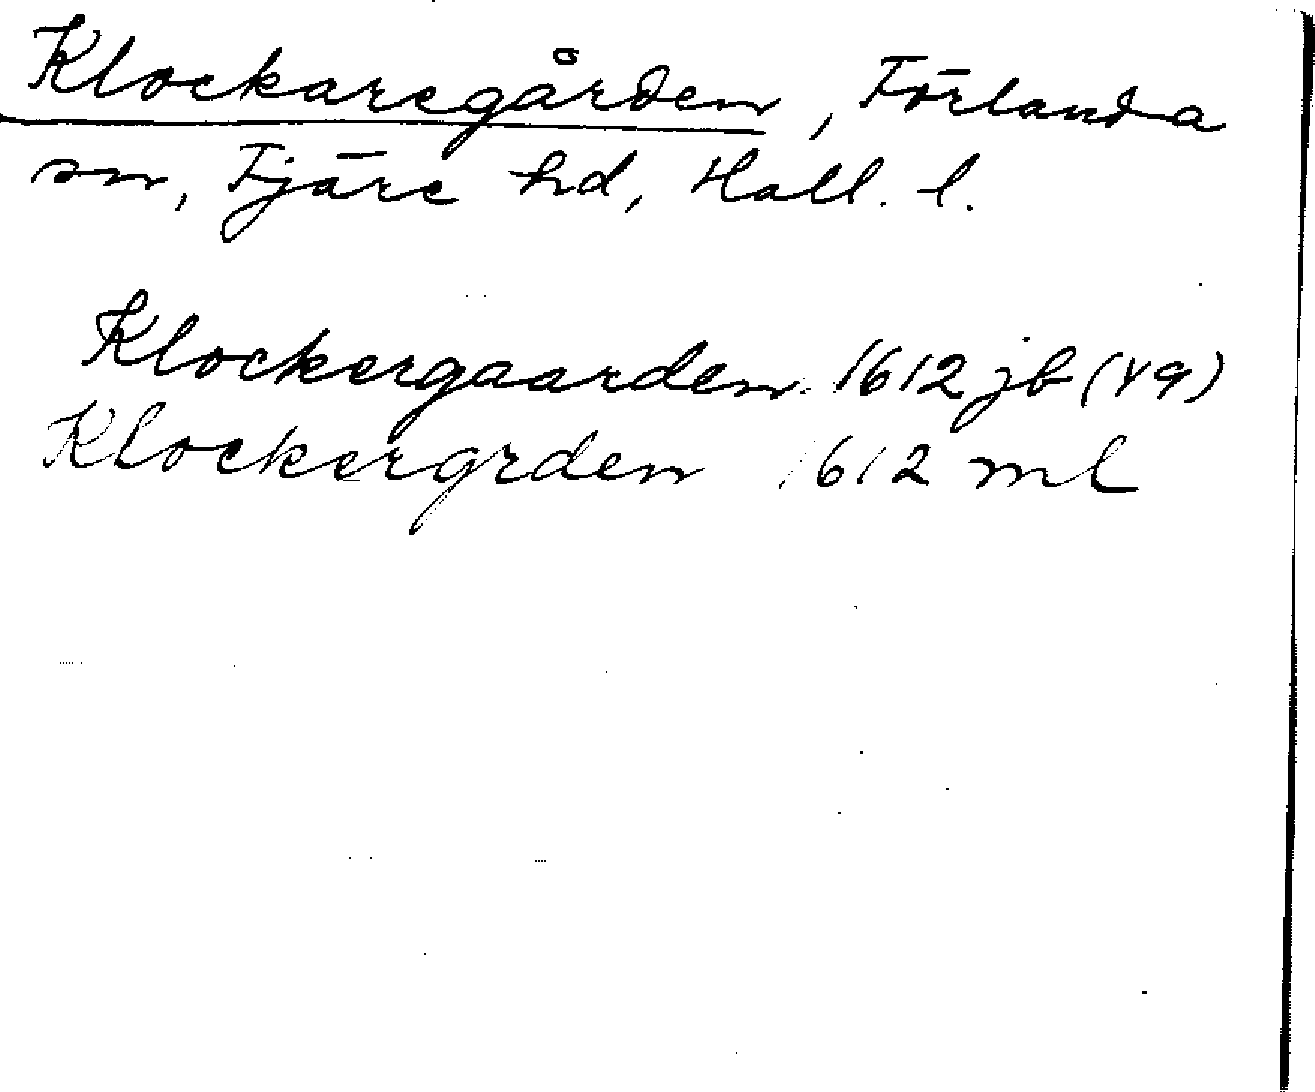 Klockaregården, Förlanda
sn, Fjäre hd, Hall. l.
Klockergaarden 1612 jb (49)
Klockergrden 1612 ml